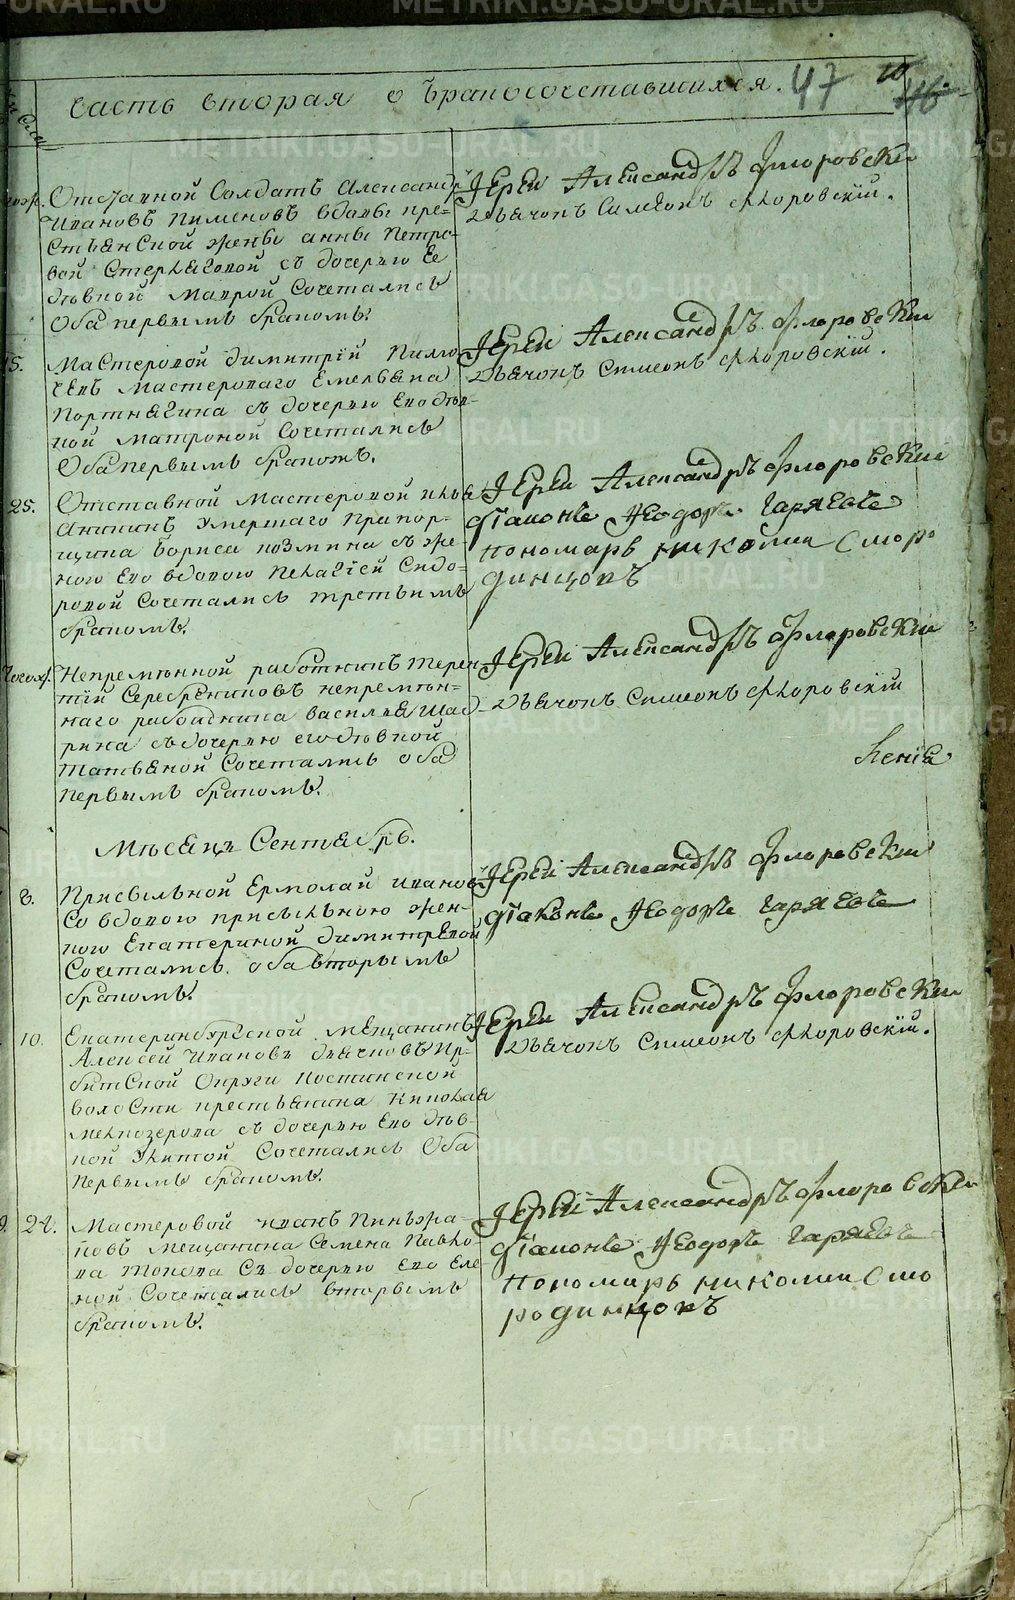 Часть вторая о бракосочетавшихся. 47
Отставной Солдатъ Александръ
Ивановъ Пименовъ вдовы кре=
стьянской жены анны Петро=
вой Стерлаговой съ дочерью Ее
дѣвкой Маврой Сочетались
Оба первымъ бракомъ.
Іерей Александръ Флоровскій
Дьячокъ Симеонъ Флоровскій.
15.
Мастеровой Димитрій
Мастероваго Емельяна
Портнягина съ дочерью Ево дѣв=
кой Матроной Сочетались
Оба первымъ бракомъ.
Іерей Александръ Флоровскій
Дьячокъ Симеонъ Флоровскій.
25.
Отставной Мастеровой Илья
Аникинъ Умершаго Прапор=
щика Бориса Козмина съ же=
ною Ево вдовою Пелагіей Сидо=
ровой Сочетались третьимъ
бракомъ.
Іерей Александръ Флоровскій
діаконъ Ѳеодоръ Гаряевъ
пономарь николай Сморо
динцовъ
Непремѣнной работникъ Терен
тій Серебрениковъ непремѣн=
наго работника Василья Шад=
рина съ дочерью его дѣвкой
Татьяной Сочетались оба
Первымъ бракомъ.
Іерей Александръ Флоровскій
Дьячокъ Симеонъ Флоровскій
Мѣсяцъ Сентябрь.
8.
Присыльной Ермолай Ивановъ
Со вдовою присыльною жен=
кою Екатериной димитревой
Сочетались оба вторымъ
бракомъ.
Іерей Александръ Флоровскій
діаконъ Ѳеодоръ Гаряевъ
10.
Екатеринбургской мѣщанинъ
Алексей Ивановъ Дьячковъ Ир=
битской Округи
волости крестьянина
съ дочерью Ево дѣв=
кой Улитой Сочетались Оба
Первымъ бракомъ.
Іерей Александръ Флоровскій
Дьячокъ Симеонъ Флоровскій.
Мастеровой иванъ
мещанина Семена Павло=
ва съ дочерью Ево Еле
ной Сочетались вторымъ
бракомъ.
Іерей Александръ Флоровскій
діаконъ Ѳеодоръ Гаряевъ
пономарь николай Смо
родинцовъ